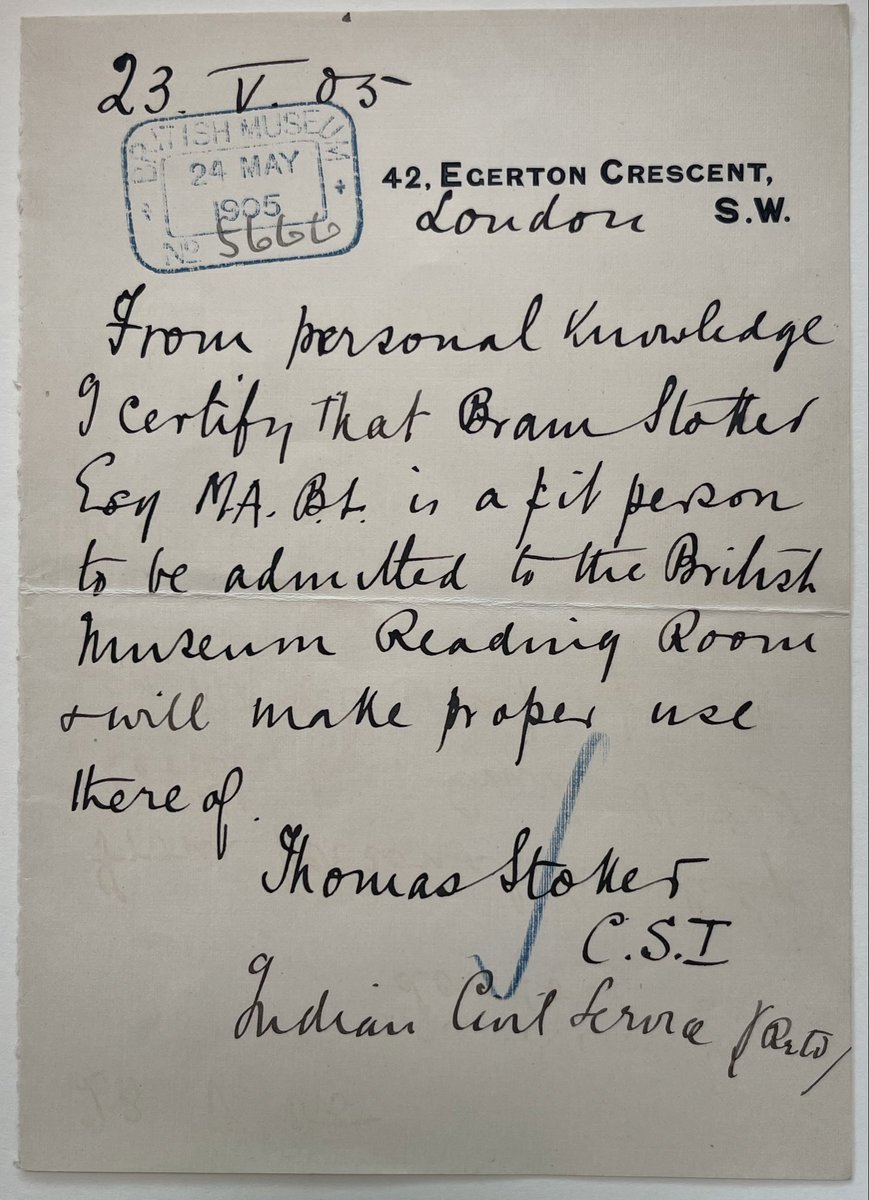 23. V. 05
BRITISH MUSEUM
24 MAY
1905
No 5666
42, EGERTON CRESCENT,
London S.W.
From personal knowledge
I certify that Bram Stoker
Esq M.A. B.L. is a fit person
to be admitted to the British
Museum Reading Room
& will make proper use
there of.
Thomas Stoker
C.S.I
Indian Civil Service (Retd)